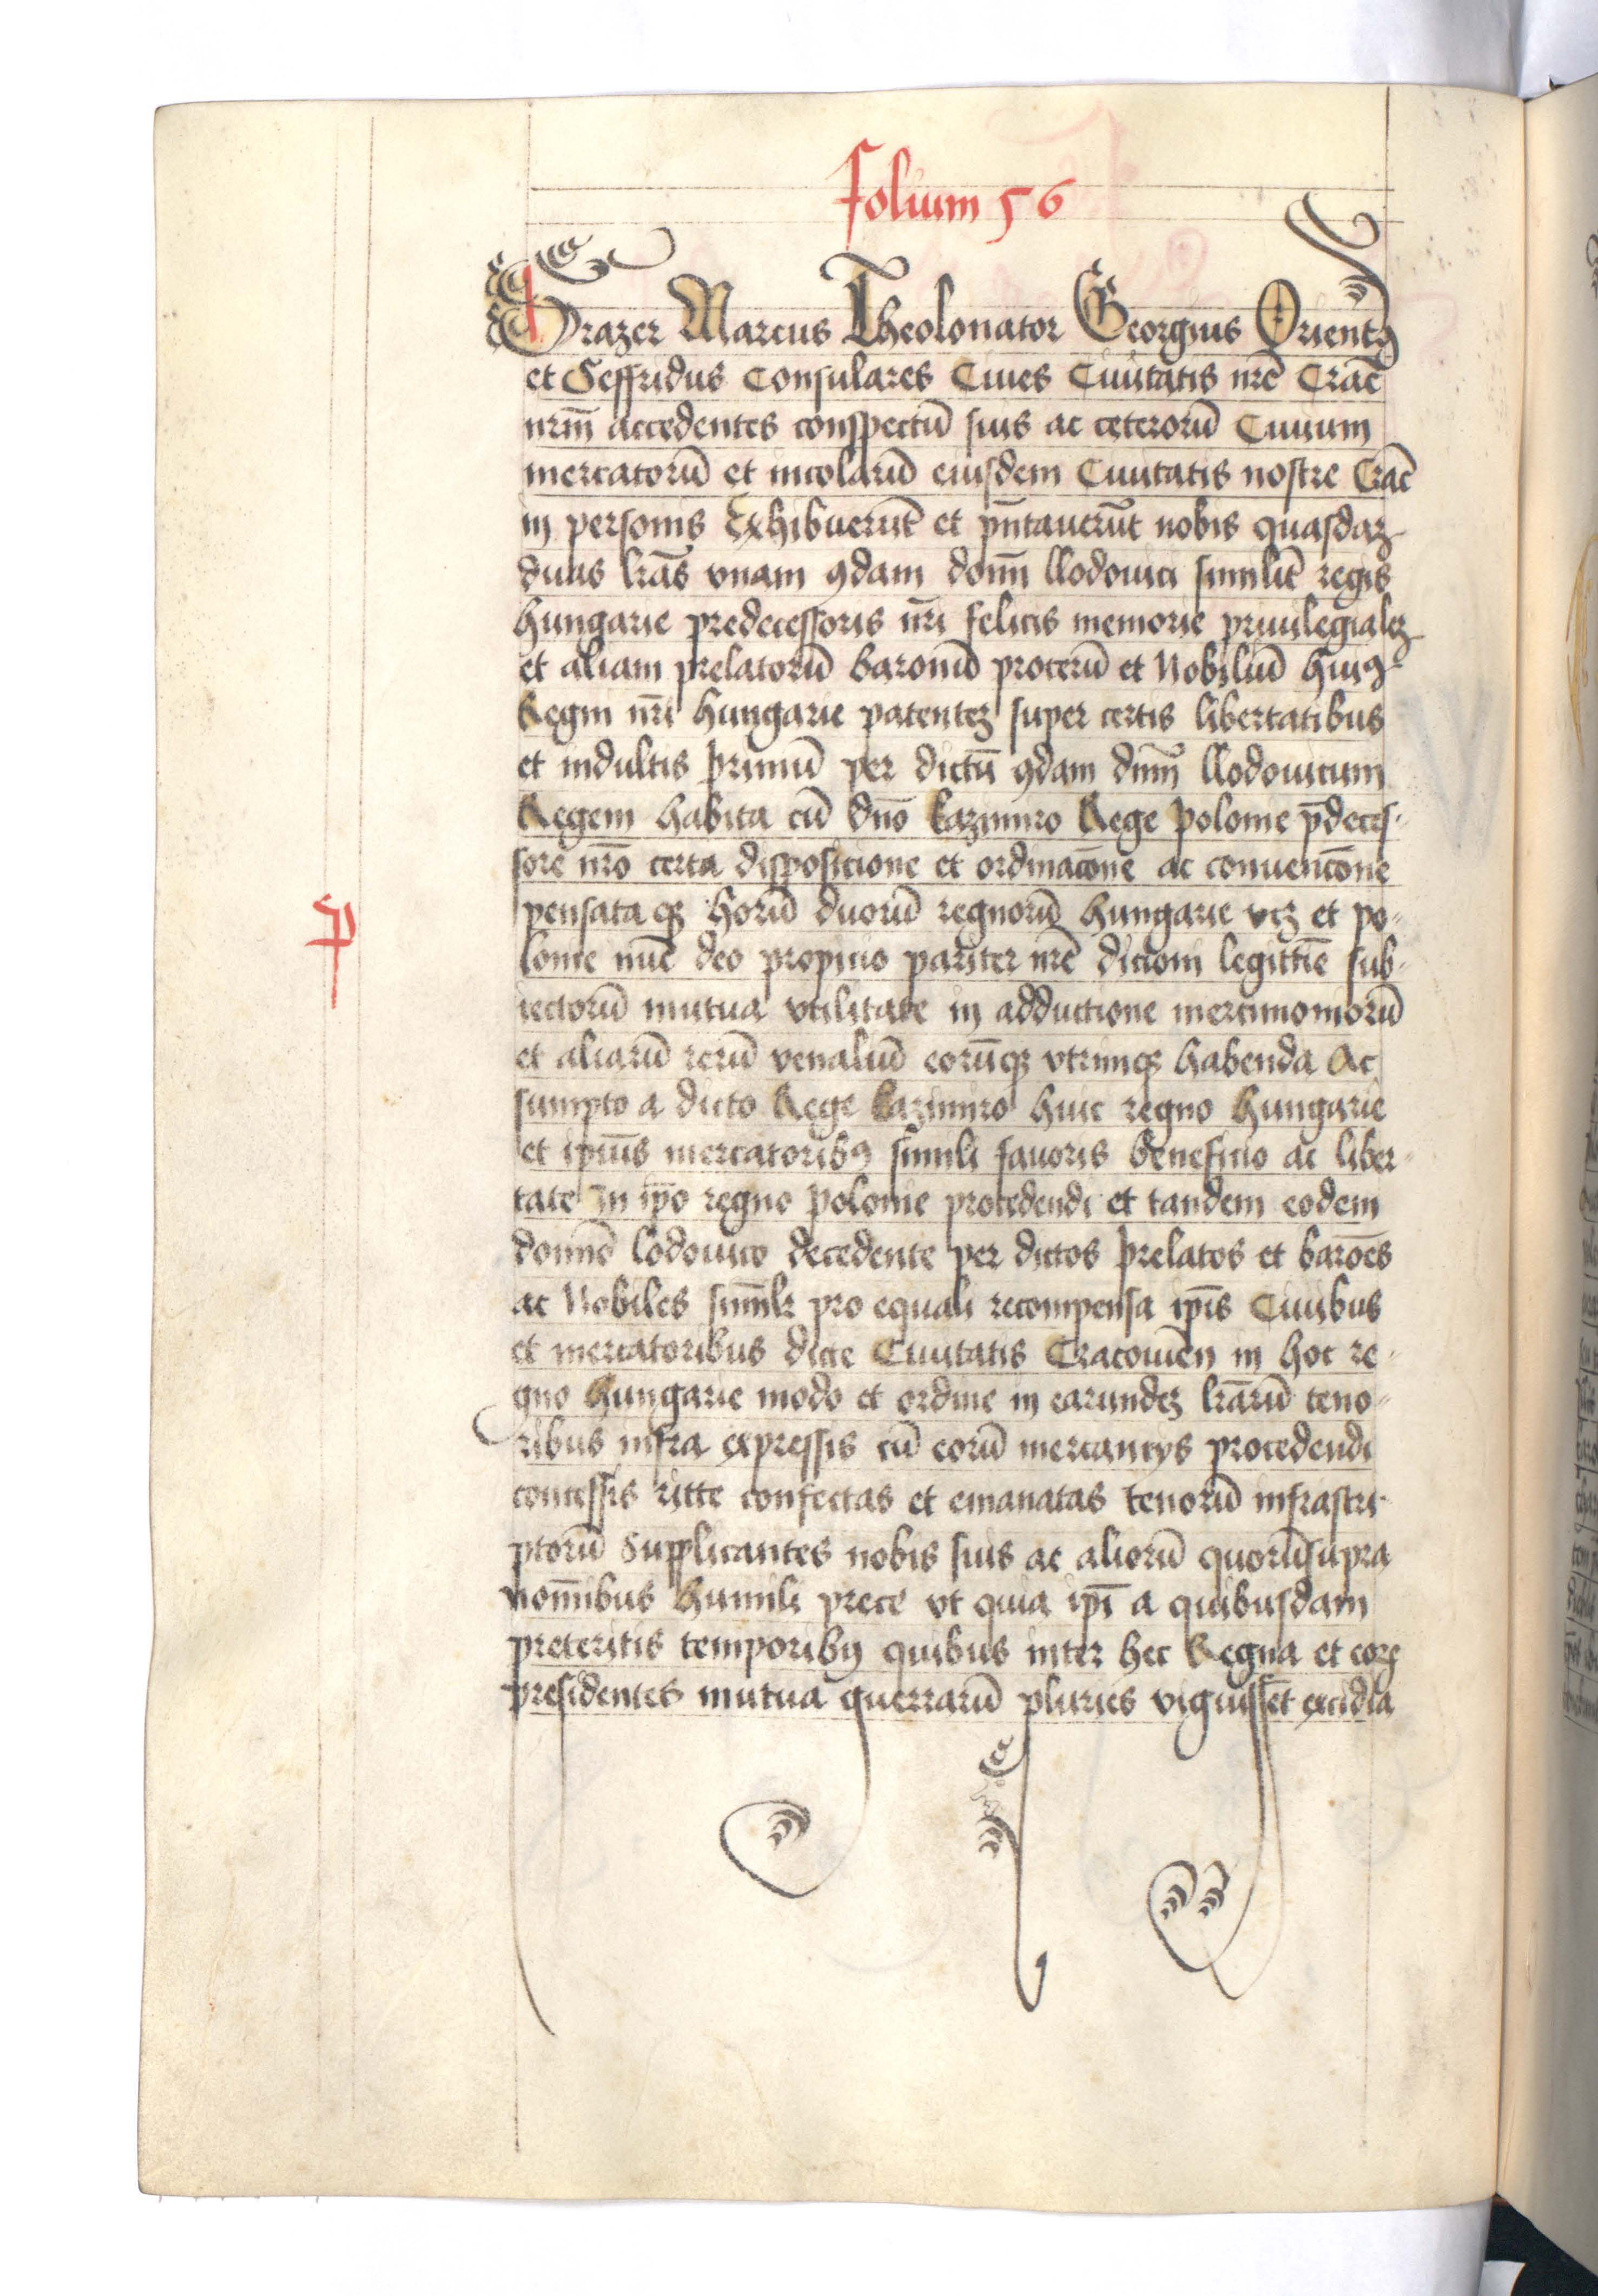 Folium 56
Drazer Marcus Theolonator Georgius Orientꝰ
et Seffridus Consulares Ciues Ciuitatis nr̄e Crac̄
nrm̄ accedentes conspectū suis ac ceterorū Ciuium
mercatorū et incolarū eiusdem Ciuitatis nostre Crac̄
in personis Exhibuerūt et pn̄tauerūt nobis quasdaz
duas lr̄as vnam ꝯdam domī llodouici similit̄ regis
hungarie predecessoris nr̄i felicis memorie priuilegialez
et aliam prelatorū baronū procerū et Nobiliū huiꝰ
Regni nr̄i hungarie patentez super certis libertatibus
et indultis primū per dictū ꝯdam dnm̄ llodouicum
Regem habita cū dn̄o kazimiro Rege polonie p̄deces-
sore nr̄o certa dispositione et ordinacōne ac conuencōne
pensata qꝫ horū duorū regnorū hungarie vcz et po-
lonie nūc deo propicio pariter nr̄e dicioni legittīe sub-
iectorū mutua vtilitate in adductione mercimoniorū
et aliarū rerū venaliū eorūqꝫ vtrimqꝫ habenda Ac
sumpto a dicto Rege kazimiro huic regno hungarie
et ipiūs mercatoribꝰ simili fauoris beneficio ac liber-
tate in ip̄o regno polonie procedendi et tandem eodem
domīo lodouico decedente per dictos prelatos et barōes
ac Nobiles simīlr pro equali recompensa ip̄is Ciuibus
et mercatoribus dicte Ciuitatis Cracouien̄ in hoc re-
gno hungarie modo et ordine in earundez lr̄arū teno-
ribus infra expressis cū eorū mercancijs procedendi
concessis ritte confectas et emanatas tenorū infrascri-
ptorū Supplicantes nobis suis ac aliorū quorū supra
nomībus humili prece vt quia ip̄i a quibusdam
preteritis temporibꝰ quibus inter hec Regna et eorꝝ
presidentes mutua guerrarū pluries viguissēt excidia
P